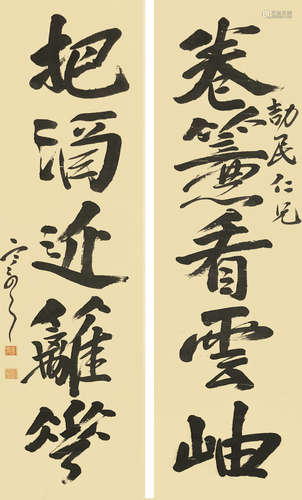 卷簾看雲岫
劼民仁兄
把酒近籬花